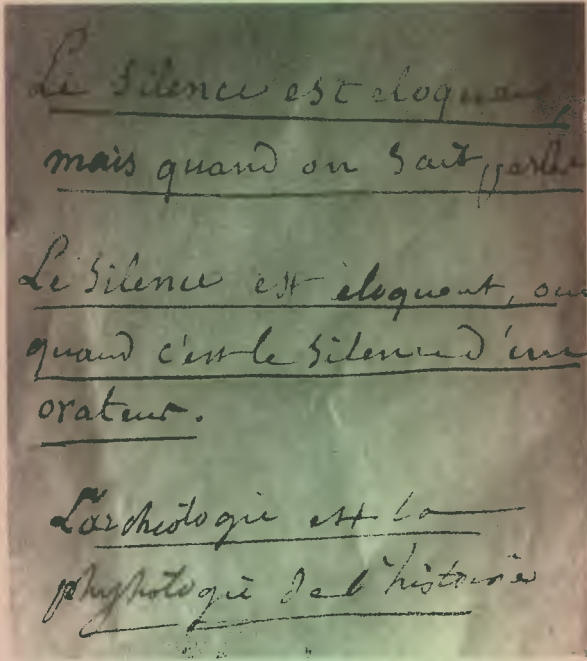 Le Silence est eloquent,
mais quand on Sait parler
Le Silence est éloquent, oui
quand c'est le Silence d'un
orateur.
L'archéologie est la
de l'histoire